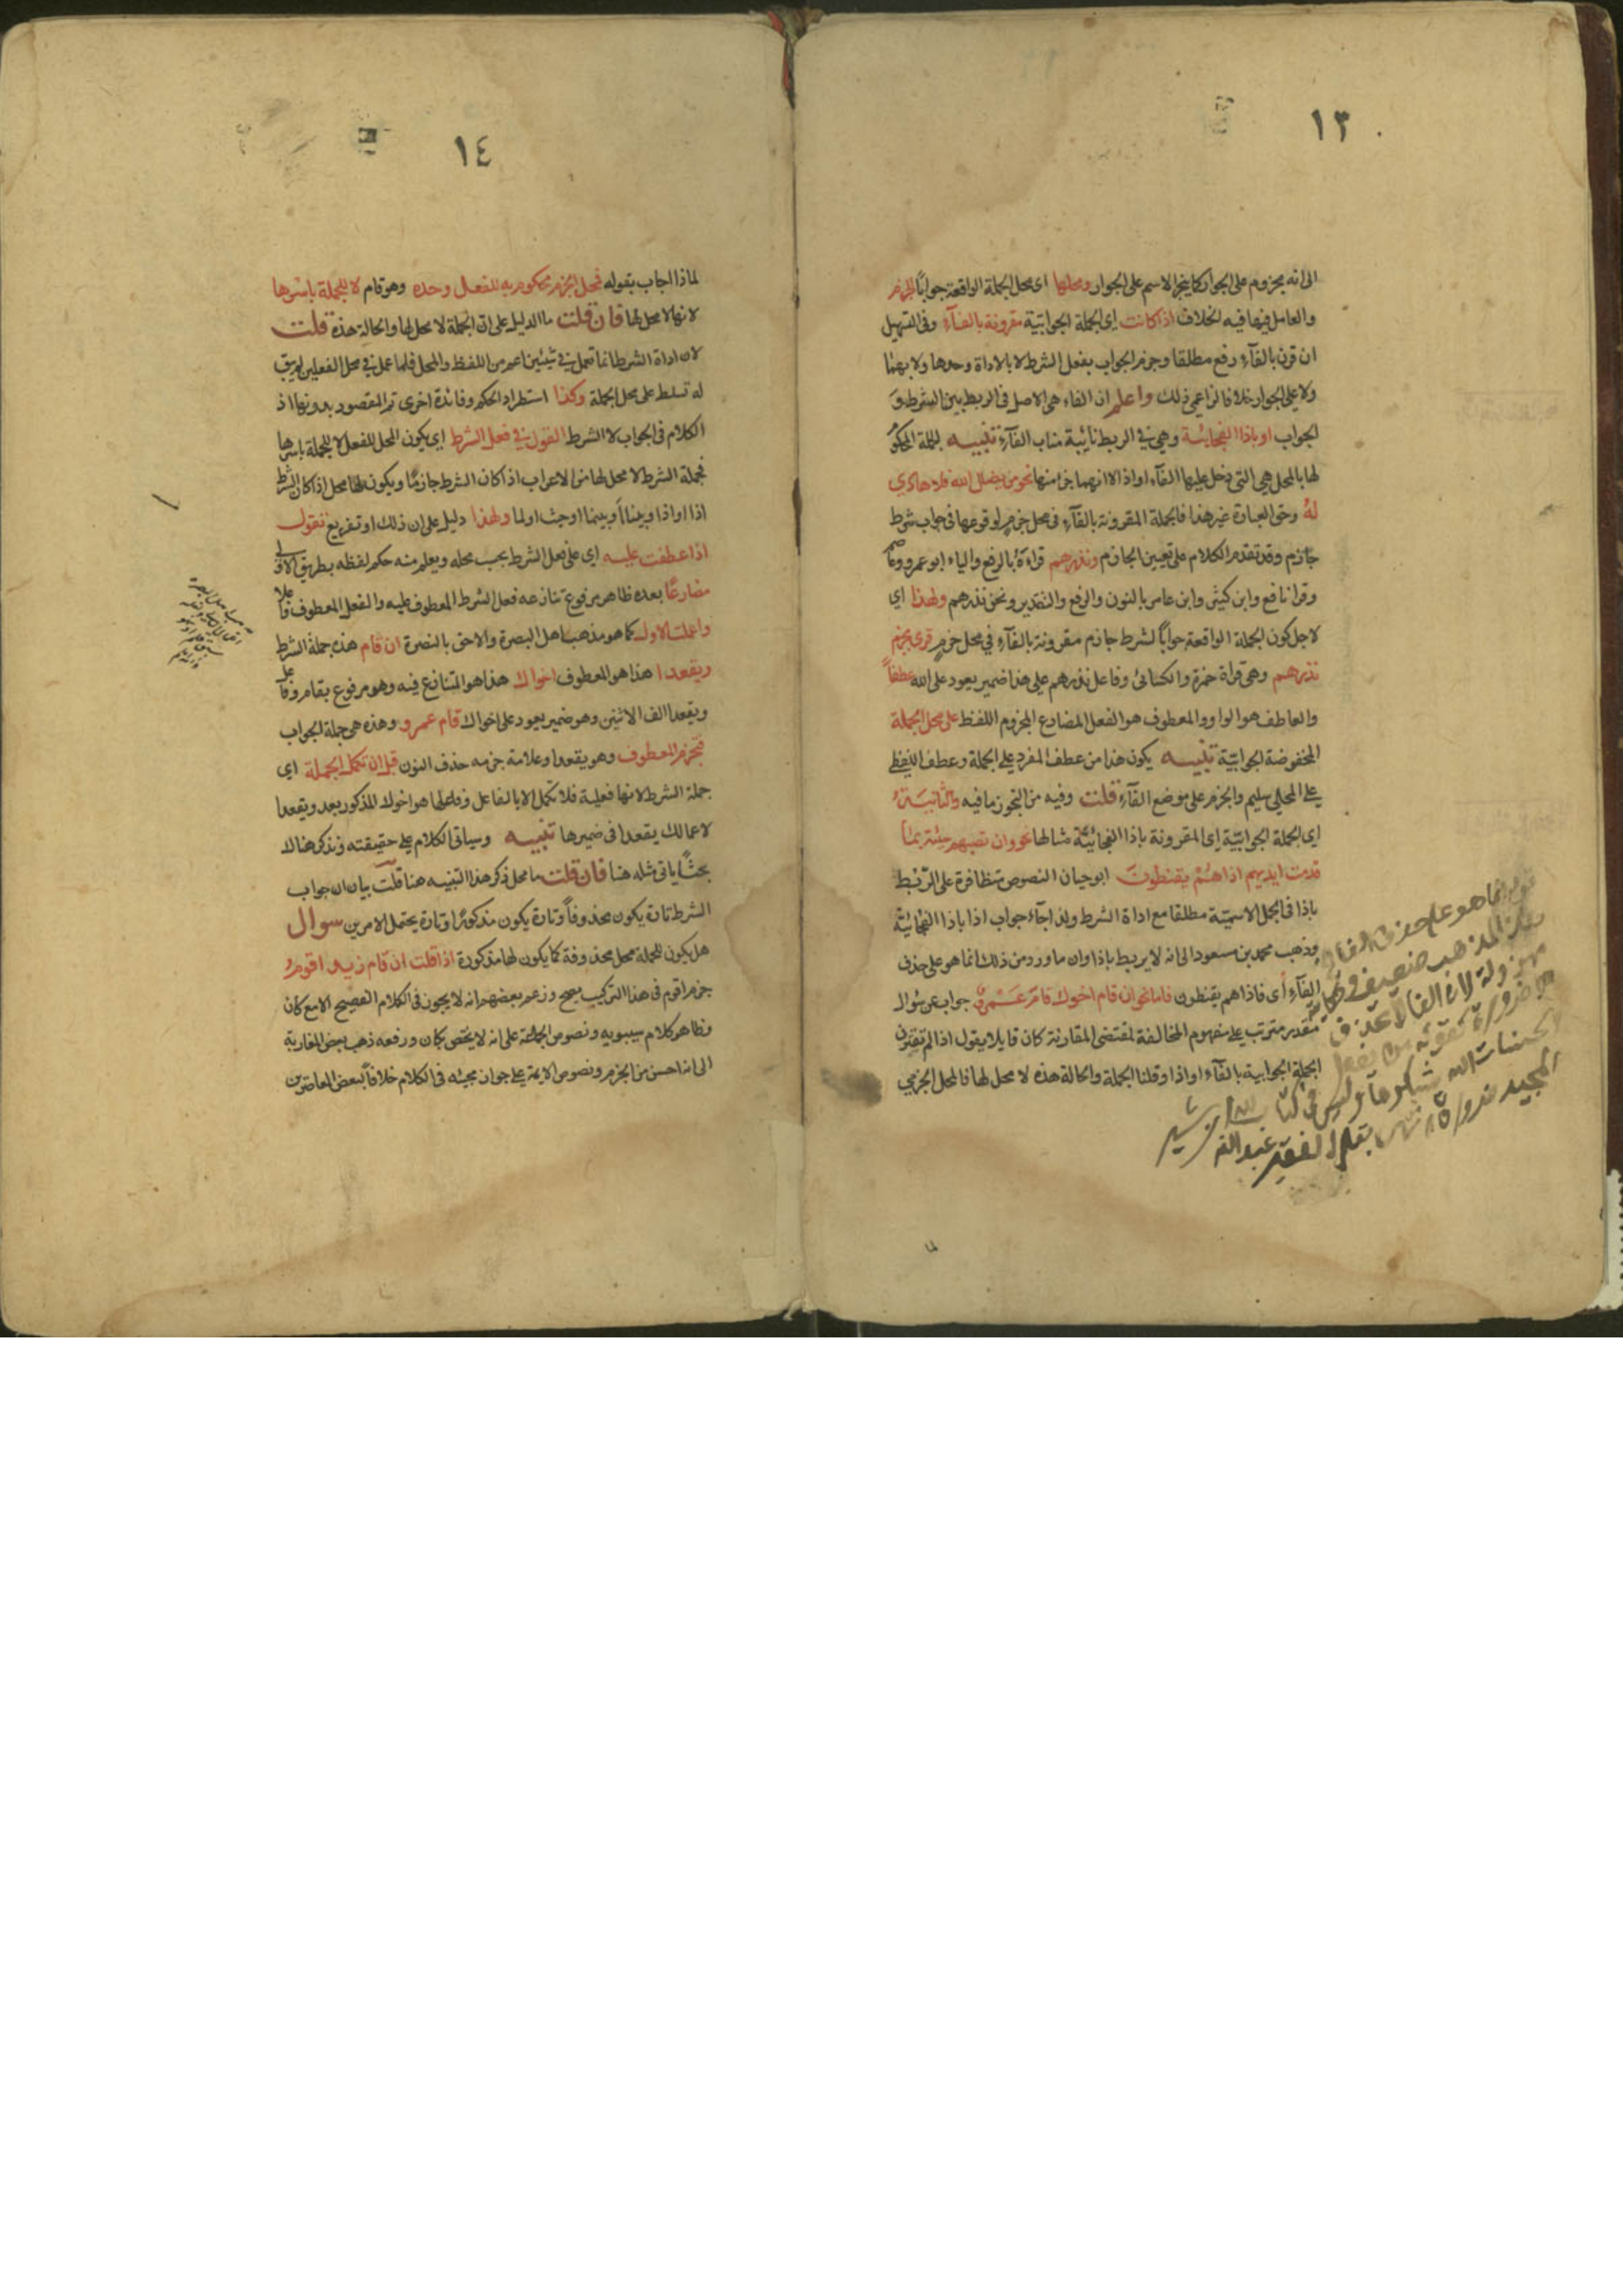 ١٣
الى انه مجزوم على الجوار كما يجر الاسم على الجوار ومحلها اى محل الجملة الواقعة جوابًا الجزم
والعامل فيها فيه الخلاف اذا كانت اى الجملة الجوابية مقرونة بالفآء وفى التسهيل
ان قرن بالفآء رفع مطلقا وجزم الجواب بفعل الشرط لا بالاداة وحدها ولا بهما
ولا على الجوار خلافا لزاعمى ذلك واعلم ان الفاء هى الاصل فى الربط بين الشرط و
الجواب او باذا الفجائية وهى فى الربط نائبة مناب الفآء تنبيه الجملة المحكوم
لها بالمحل هى التى دخل عليها الفآء او اذا لا انهما جزا منها نحو من يضلل الله فلا هادى
له وحق العبارة غير هذا فالجملة المقرونة بالفآء فى محل جزم لوقوعها فى جواب شرط
جازم وقد تقدم الكلام على تعيين الجازم ونذرهم قراءة بالرفع والياء ابو عمرو وعاصم
وقرا نافع وابن كثير وابن عامر بالنون والرفع والتقدير ونحن نذرهم ولهذا اى
لاجل كون الجملة الواقعة جوابًا لشرط جازم مقرونة بالفآء فى محل جزم قرئ بجزم
نذرهم وهى قراة حمزة والكسائى وفاعل نذرهم على هذا ضمير يعود على الله عطفاً
والعاطف هو الواو والمعطوف هو الفعل المضارع المجزوم اللفظ على محل الجملة
المخفوضة الجوابية تنبيه يكون هذا من عطف المفرد على الجملة وعطف اللفظى
على المحلى سليم والجزم على موضع الفآء قلت وفيه من التجوز ما فيه والثانية
اى الجملة الجوابية اى المقرونة باذا الفجائية مثالها نحو وان تصبهم سيئة بما
قدمت ايديهم اذا هم يقنطون ابو حيان النصوص متظافرة على الربط
باذا فى الجمل الاسمية مطلقا مع اداة الشرط ولذا جآء جواب اذا باذا الفجائية
وذهب محمد بن مسعود الى انه لا يربط باذا وان ما ورد من ذلك انما هو على حذف
الفآء اى فاذا هم يقنطون فاما نحو ان قام اخوك قام عمرو جواب عن سؤال
مقدر مترتب على مفهوم المخالفة لمقتضى المقارنة كان قايلا يقول اذا لم تقترن
الجملة الجوابية بالفآء او اذا وقلنا الجملة والحالة هذه لا محل لها فالمحل الجزمى
قوله انما هو على حذف الفا
هذا المذهب ضعيف
لان الفا لا تحذف
الا ضرورة كقوله من يفعل
الحسنات الله يشكرها وليس فى كتاب الله
المجيد ضرورة بقلم الفقير عبد الله
لما
١٤
لماذا اجاب بقوله فمحل الجزم محكوم به للفعل وحده وهو قام لا للجملة باسرها
لانها لا محل لها فان قلت ما الدليل على ان الجملة لا محل لها والحالة هذه قلت
لان اداة الشرط انما تعمل فى شيئين اعم من اللفظ والمحل فلما عمل فى محل الفعلين لم يبق
له تسلط على محل الجملة وكذا استطراد الحكم وفائدة اخرى تم المقصود بدونها اذ
الكلام فى الجواب لا الشرط القول فى فعل الشرط اى يكون المحل للفعل لا للجملة باسرها
فجملة الشرط لا محل لها من الاعراب اذا كان الشرط جازمًا ويكون لها محل اذا كان الشرط
اذا او اذا وبينا او بينما او حيث او لما ولهذا دليل على ان ذلك او تفريع تقول
اذا عطفت عليه اى على فعل الشرط بحسب محله ويعلم منه حكم لفظه بطريق الاولى
مضارعًا بعده ظاهر مرفوع تنازعه فعل الشرط المعطوف عليه والفعل المعطوف فاعلا
واعملت الاول كما هو مذهب اهل البصرة والاحق بالنصرة ان قام هذه جملة الشرط
ويقعدا هذا هو المعطوف اخواك هذا هو المتنازع فيه وهو مرفوع بقام وفاعل
ويقعدا الف الاثنين وهو ضمير يعود على اخواك قام عمرو وهذه هى جملة الجواب
فتجزم المعطوف وهو يقعدا وعلامة جزمه حذف النون قبل ان تكمل الجملة اى
جملة الشرط لانها فعلية فلا تكمل الا بالفاعل وفاعلها هو اخواك المذكور بعد ويقعدا
لاعمالك يقعدا فى ضميرها تنبيه وسياتى الكلام على حقيقته ونذكر هنالك
بحثاً ياتى مثله هنا فان قلت ما محل ذكر هذا التنبيه هنا قلت بيان ان جواب
الشرط تارة يكون محذوفاً وتارة يكون مذكورًا وتارة يحتمل الامرين سوال
هل يكون للجملة محل محذوفة كما يكون لها مذكورة اذا قلت ان قام زيد اقوم
جزم اقوم فى هذا التركيب يصح وزعم بعضهم انه لا يجوز فى الكلام الفصيح الا مع كان
وظاهر كلام سيبويه ونصوص الجماعة على انه لا يختص بكان ورفعه ذهب بعض المغاربة
الى انه احسن من الجزم ونصوص الايمة على جواز مجيئه فى الكلام خلافاً لبعض المعاصرين